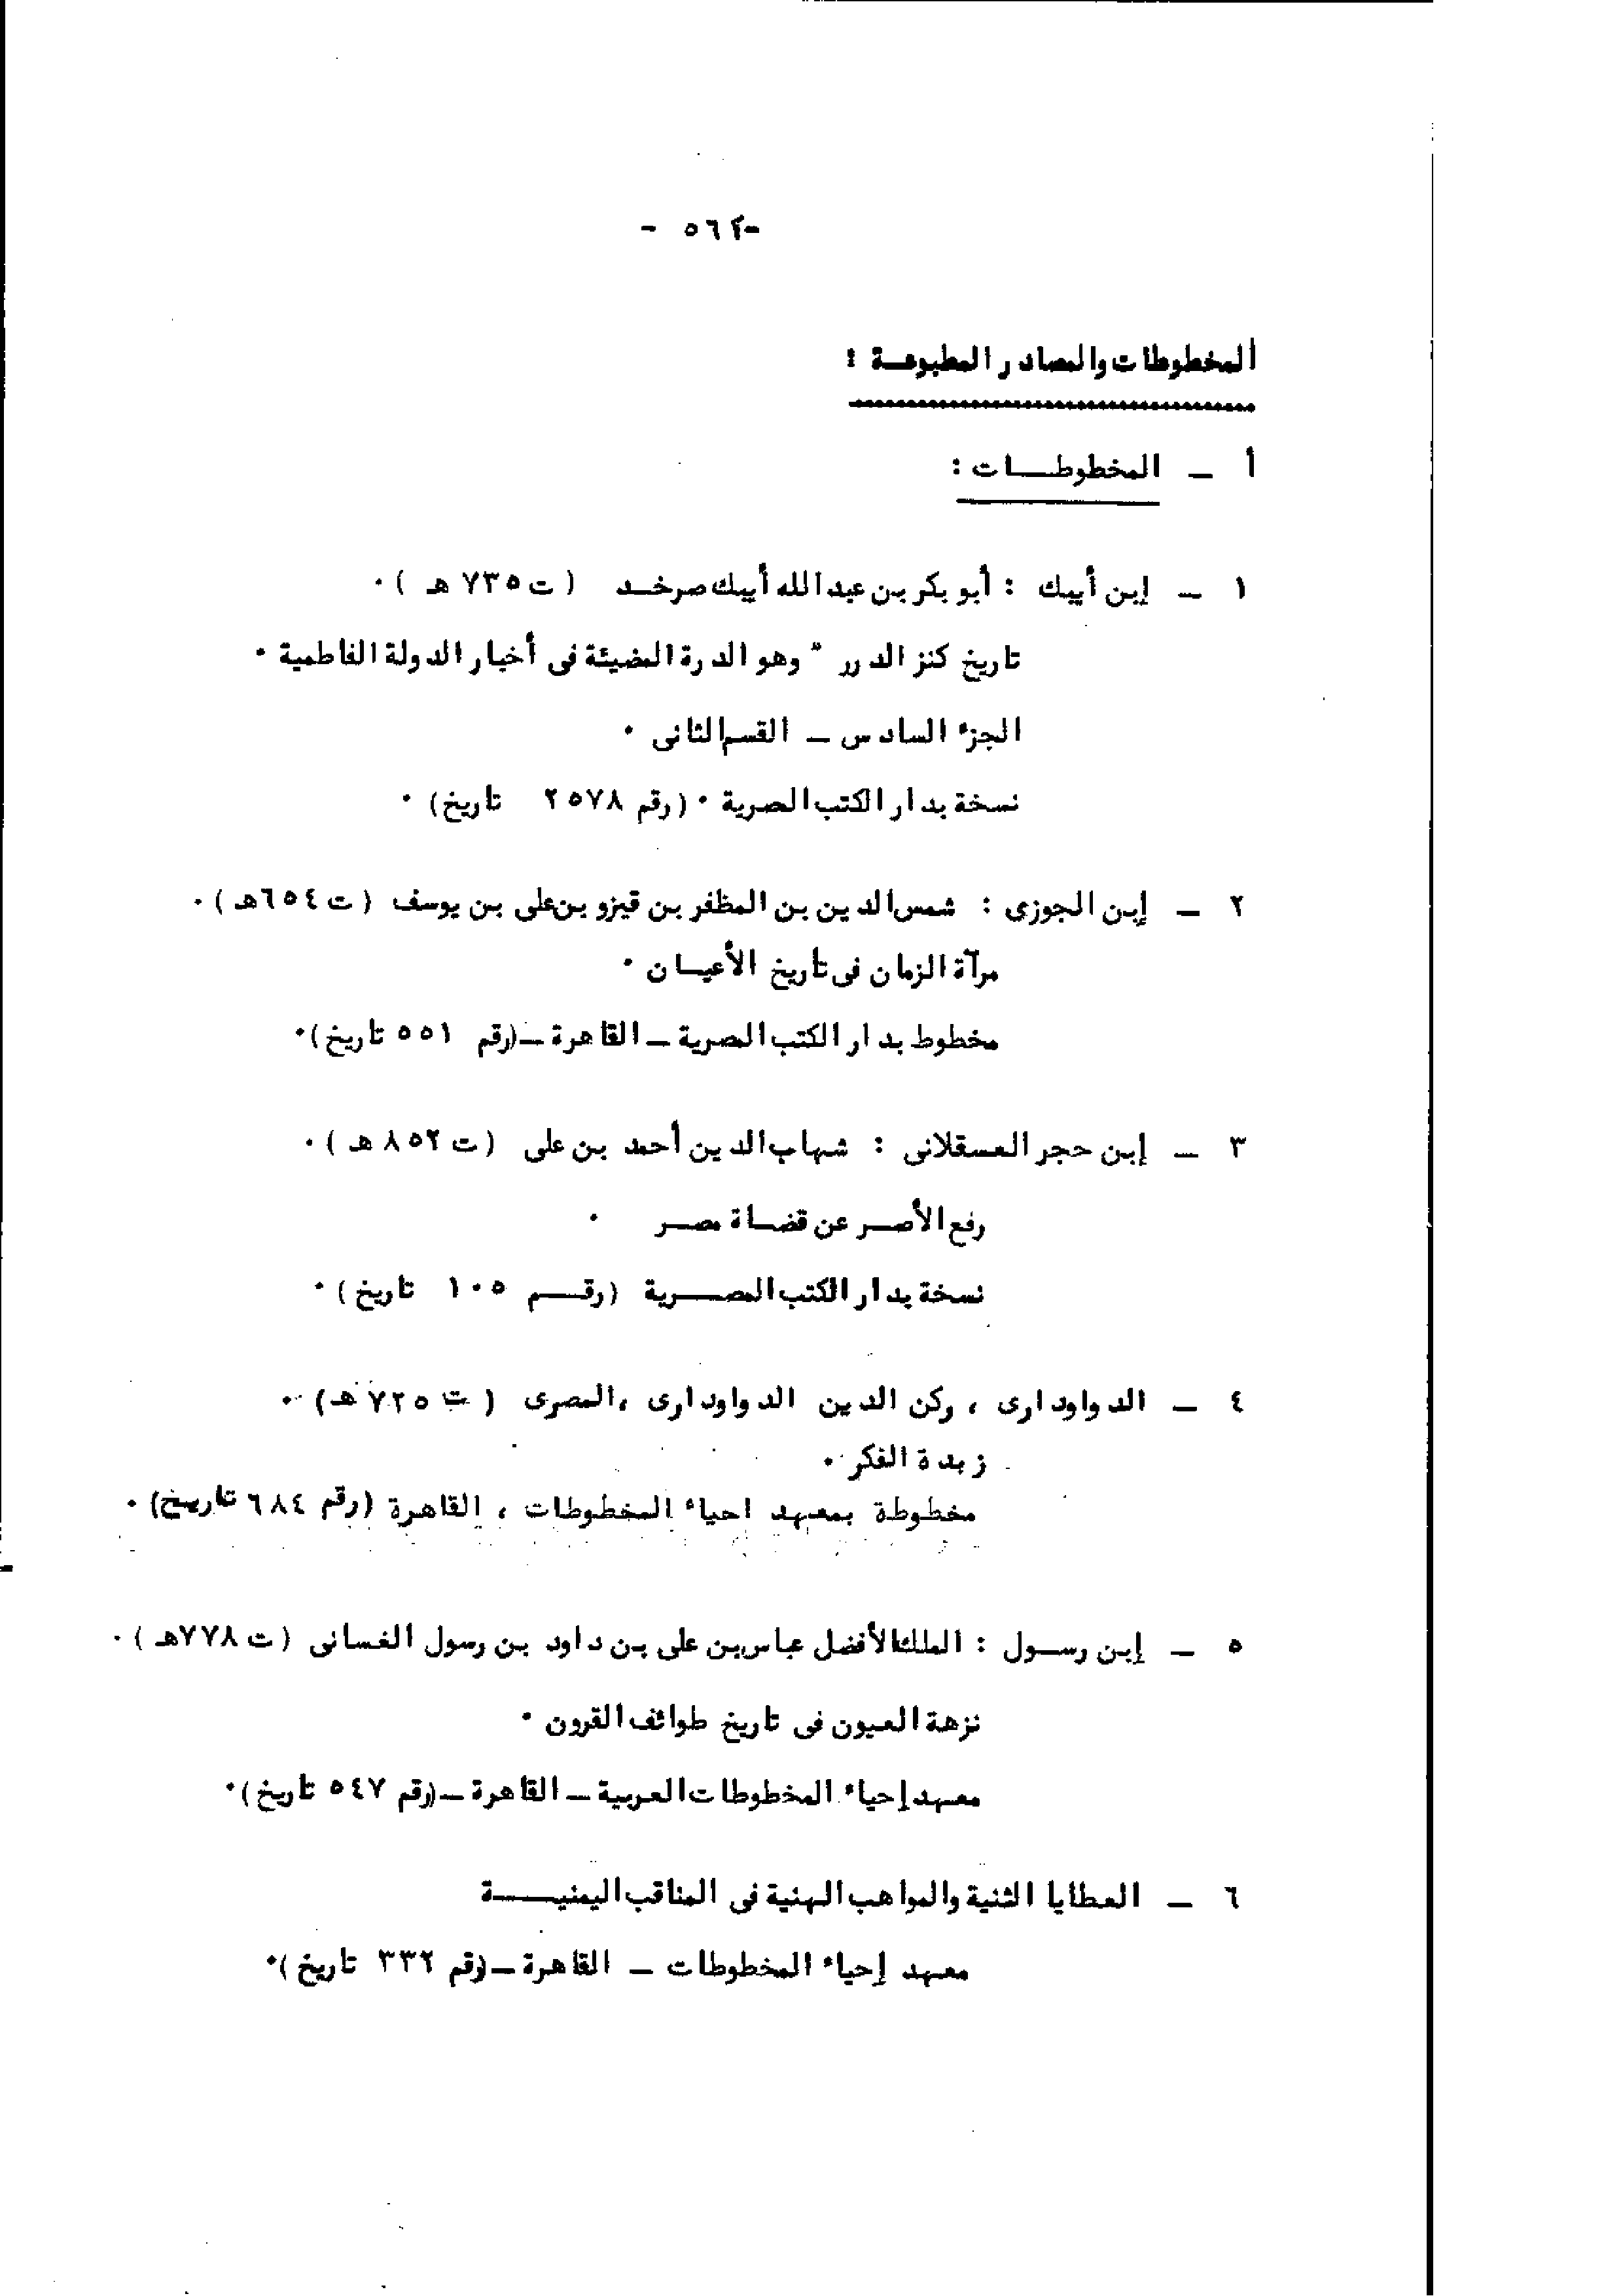 - ٥٦٢ -
المخطوطات والمصادر المطبوعـة :
أ – المخطوطـــات :
١ – إبن أيبك : أبو بكر بن عبدالله أيبك صرخـد ( ت ٧٣٥ هـ ) ٠
تاريخ كنز الدرر " وهو الدرة المضيئة فى أخبار الدولة الفاطمية ٠
الجزء السادس – القسم الثانى ٠
نسخة بدار الكتب الصرية ٠ (رقم ٢٥٧٨ تاريخ) ٠
٢ – إبن الجوزى : شمس الدين بن المظفر بن قيزو بن على بن يوسف ( ت ٦٥٤هـ ) ٠
مرآة الزمان فى تاريخ الأعيـان ٠
مخطوط بدار الكتب المصرية – القاهرة – (رقم ٥٥١ تاريخ) ٠
٣ – إبن حجر العسقلانى : شهاب الدين أحمد بن على ( ت ٨٥٢ هـ ) ٠
رفع الأصـر عن قضـاة مصـر ٠
نسخة بدار الكتب المصـــرية (رقــم ١٠٥ تاريخ) ٠
٤ – الدواودارى ، ركن الدين الدواودارى ،المصرى ( ت ٧٢٥ هـ) ٠
زبدة الفكر ٠
مخطوطة بمعهد احياء المخطوطات ، القاهرة (رقم ٦٨٤ تاريخ) ٠
٥ – إبن رسـول : الملك الأفضل عباس بن على بن داود بن رسول الغسانى ( ت ٧٧٨هـ ) ٠
نزهة العيون فى تاريخ طوائف القرون ٠
معهد إحياء المخطوطات العربية – القاهرة – (رقم ٥٤٧ تاريخ) ٠
٦ – العطايا الثنية والمواهب الهنية فى المناقب اليمنيـــة
معهد إحياء المخطوطات – القاهرة – (رقم ٣٣٢ تاريخ) ٠